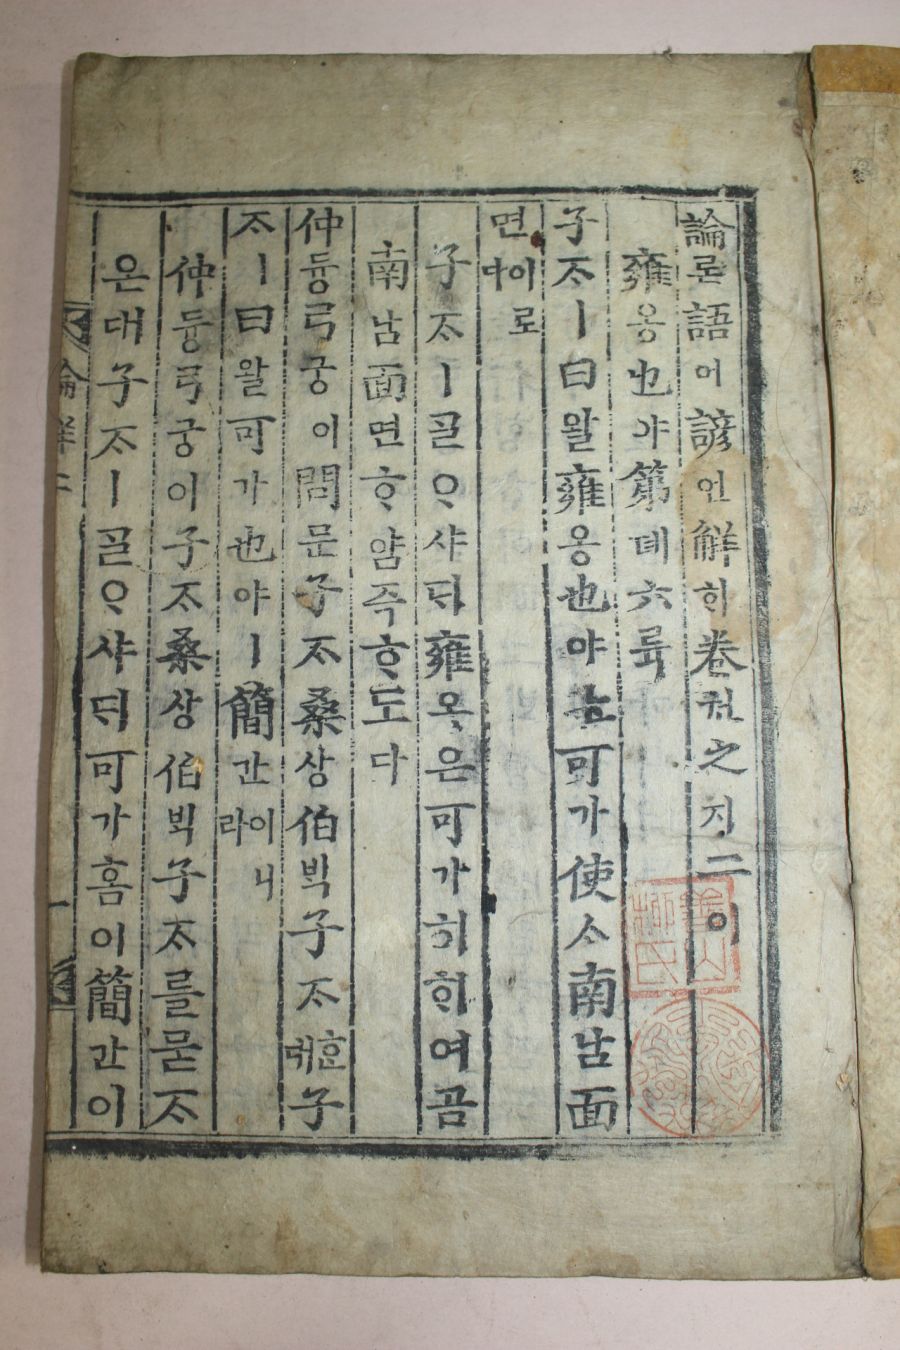 論론語어諺언解ᄒᆡ卷권之지二이
雍옹也야第뎨六륙
子ᄌᆞㅣ曰왈雍옹也야ᄂᆞᆫ可가使ᄉᆞ南남面
면이로다
子ᄌᆞㅣᄀᆞᆯᄋᆞ샤ᄃᆡ雍옹은可가히ᄒᆡ여곰
南남面면ᄒᆞ얌즉ᄒᆞ도다
仲듕弓궁이問문子ᄌᆞ桑상伯ᄇᆡᆨ子ᄌᆞᄒᆞᆫ대子
ᄌᆞㅣ曰왈可가也야ㅣ簡간이니라
仲듕弓궁이子ᄌᆞ桑상伯ᄇᆡᆨ子ᄌᆞ를묻ᄌᆞ
온대子ᄌᆞㅣᄀᆞᆯᄋᆞ샤ᄃᆡ可가홈이簡간이
論解二
一